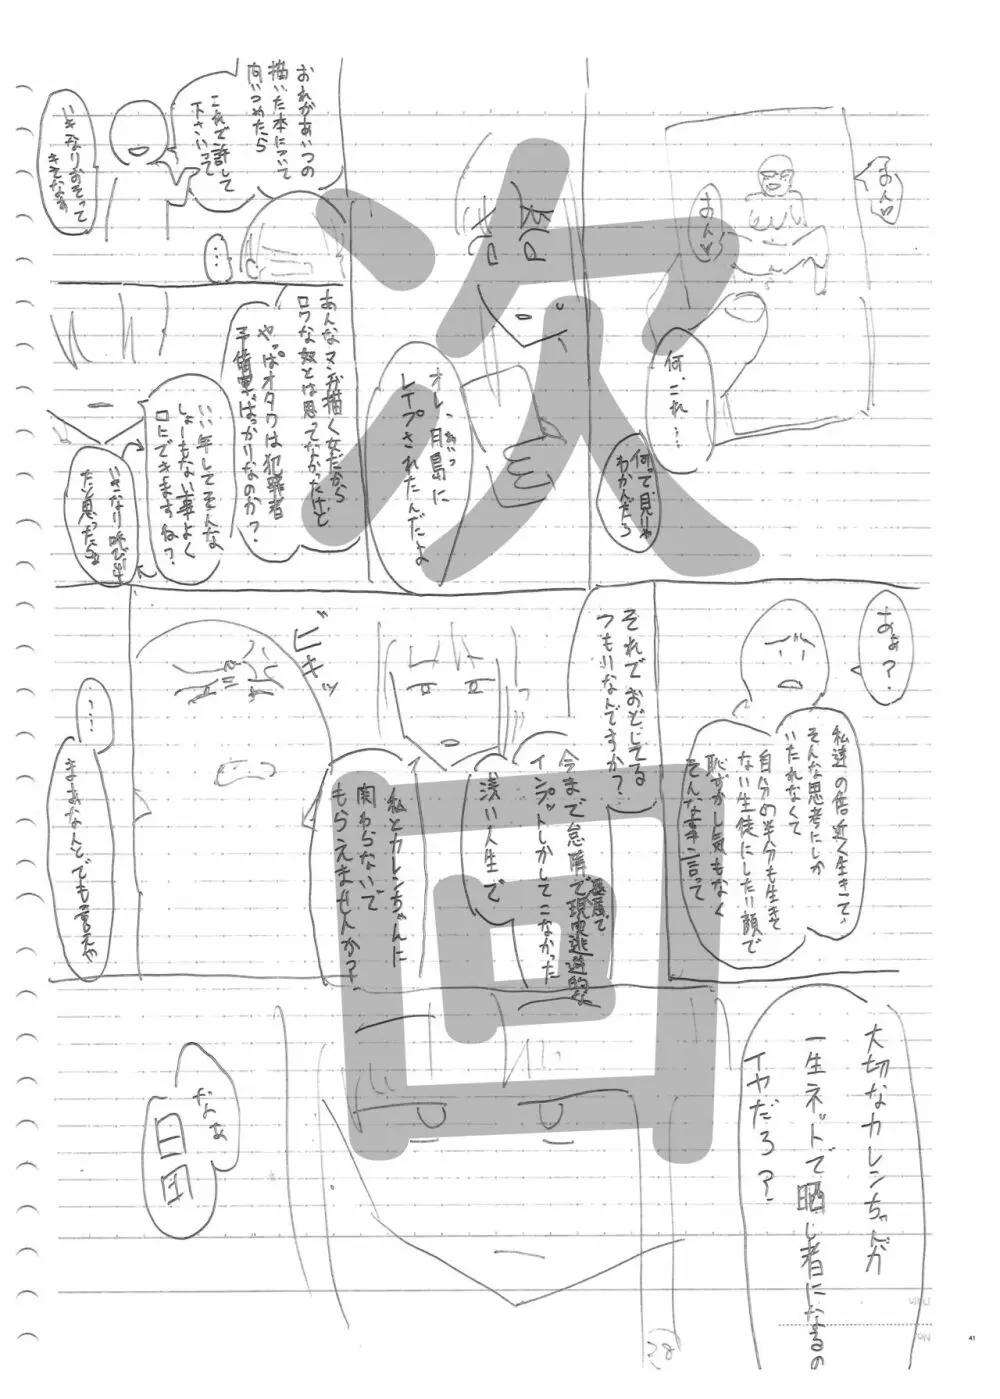 あん♡
あん♡
何、これ…
何って見りゃ
わかんだろ
オレ、月島に
あいつ
レイプされたんだよ
おれがあいつの
描いた本について
問いつめたら
これで許して
下さいって
いきなりおそって
きてなぁ
…
あんなマンガ描く女だから
ロクな奴とは思ってなかったけど
やっぱオタクは犯罪者
予備軍ばっかりなのか？
いい年してそんな
しょーもない事よく
口にできますね？
いきなり呼び出し
たと思ったら
あぁ？
私達の倍近く生きていて
そんな思考にしか
いたれなくて
自分の半分も生きて
ない生徒にしたり顔で
恥ずかし気もなく
そんな事言って
それでおどしてる
つもりなんですか？
今まで怠惰で
現実逃避的な
インプットしかしてこなかった
浅い人生で
私とカレンちゃんに
関わらないで
もらえませんか？
ビキッ
…
まぁなんとでも言えや
大切なカレンちゃんが
一生ネットで晒し者になるの
イヤだろ？
なぁ
次回
38
41